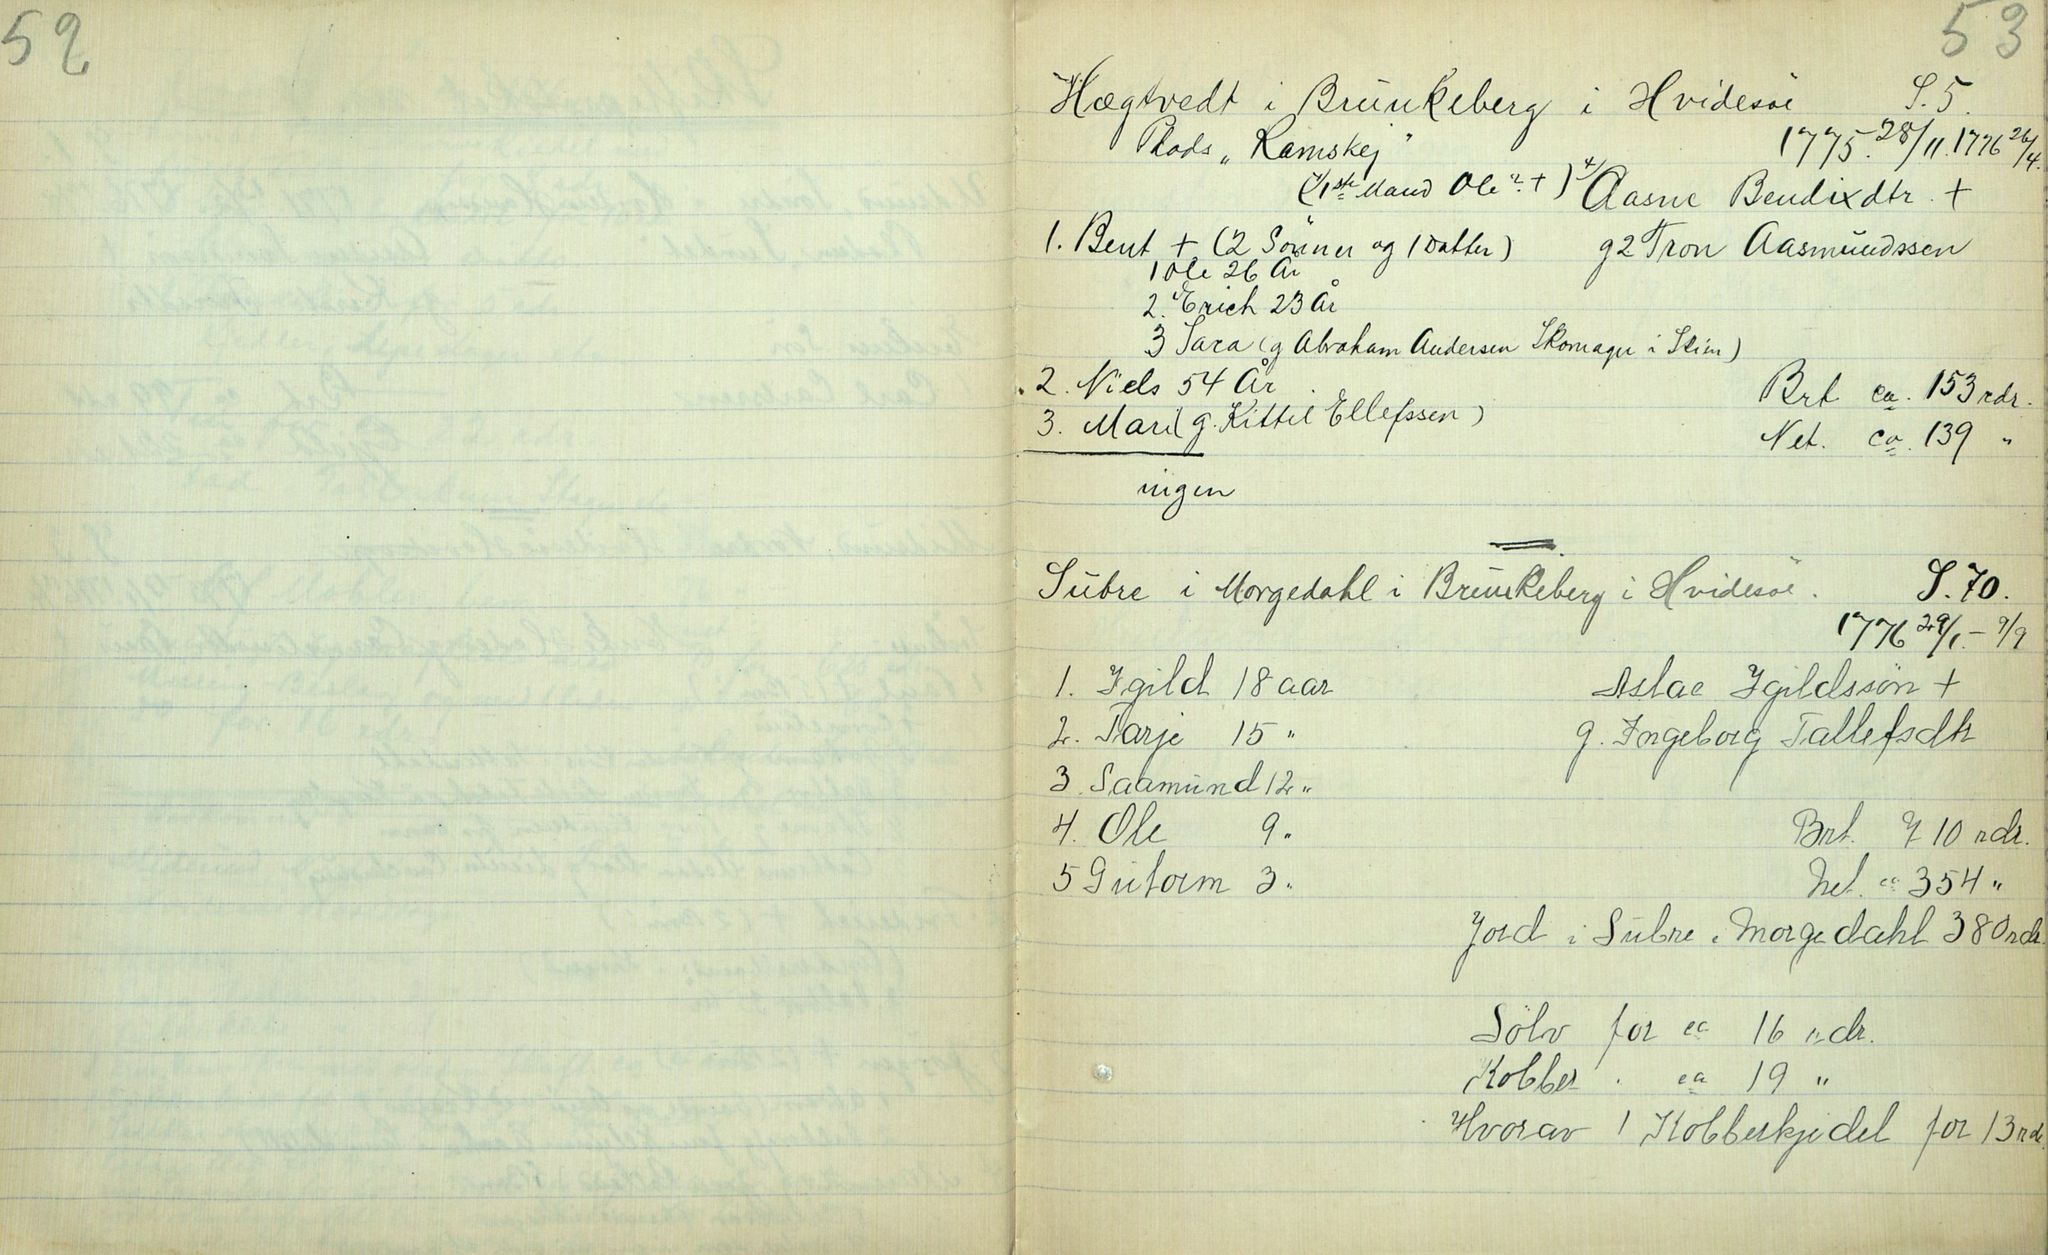 52
53
Hægtvedt i Brunkeberg i Hvidesøe S. 5.
Plads „Ramskej" 1775. 28/11. 1776 26/4.
(1ste Mand Ole ? +) Aasne Bendixdtr. +
1. Bent + (2 Sønner og 1 Datter) g2 Tron Aasmundssen
1 Ole 26 År
2. Erich 23 År
3 Sara (g Abraham Andersen Skomager i Skien)
2. Niels 54 År Brt ca. 153 rdr.
3. Mari (g. Kittil Ellefssen) Net. ca. 139 "
ingen
Subre i Morgedahl i Brunkeberg i Hvidesøe. S. 70.
1776 29/1. – 9/9
1. Igild 18 aar Aslac Igildssøn +
2. Tarje 15 " g. Ingeborg Tallefsdtr
3. Saamund 12 "
4. Ole 9 " Brt. 710 rdr.
5 Gutorm 3 " Net. ca 354 "
Jord i Subre i Morgedahl 380 rdr.
Sølv for ca 16 rdr.
Kobber " ca 19 "
Hvorav 1 Kobberkjedel for 13 rdr